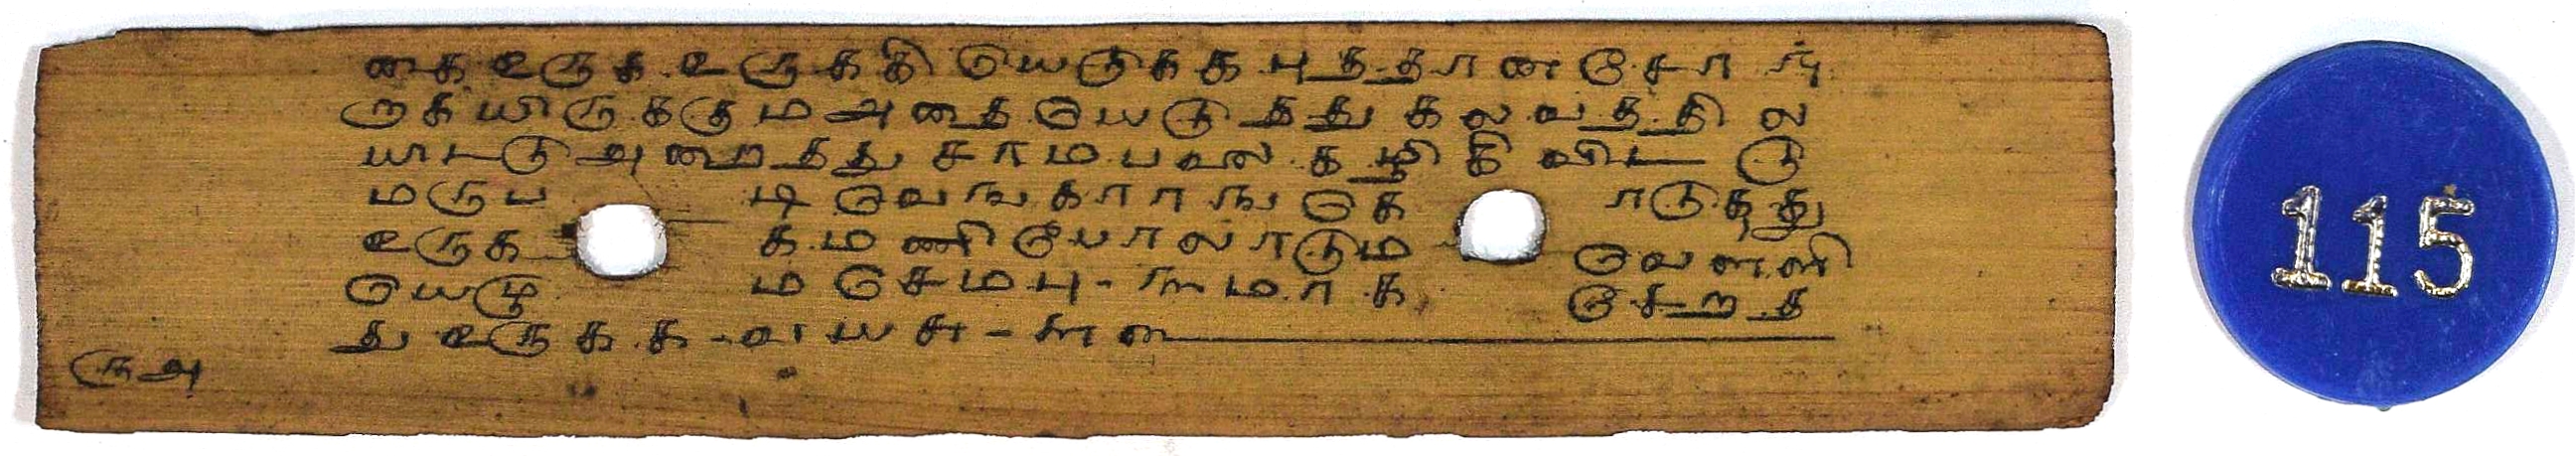 கை உருக உருககி யெடுகக புத்தானசோர்
றகியிருககும அதை யெடுத்து கலவத்தில
யிடடு அறைத்து சாமபவல கழிகி விட்டு
மருபடி வெஙகாரஙகெ ாடுத்து
உருக கமணிபோலாடும வெளளி
யெழு ம செமபு - ௩ மாக சேறத
து உருகக - வாயசு - ௩ ள
ருஅ
115